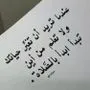 عندما تريد أن تغيّر حياتك
ولا تعلم من أين
تبدأ ابدأ بالصلاة .